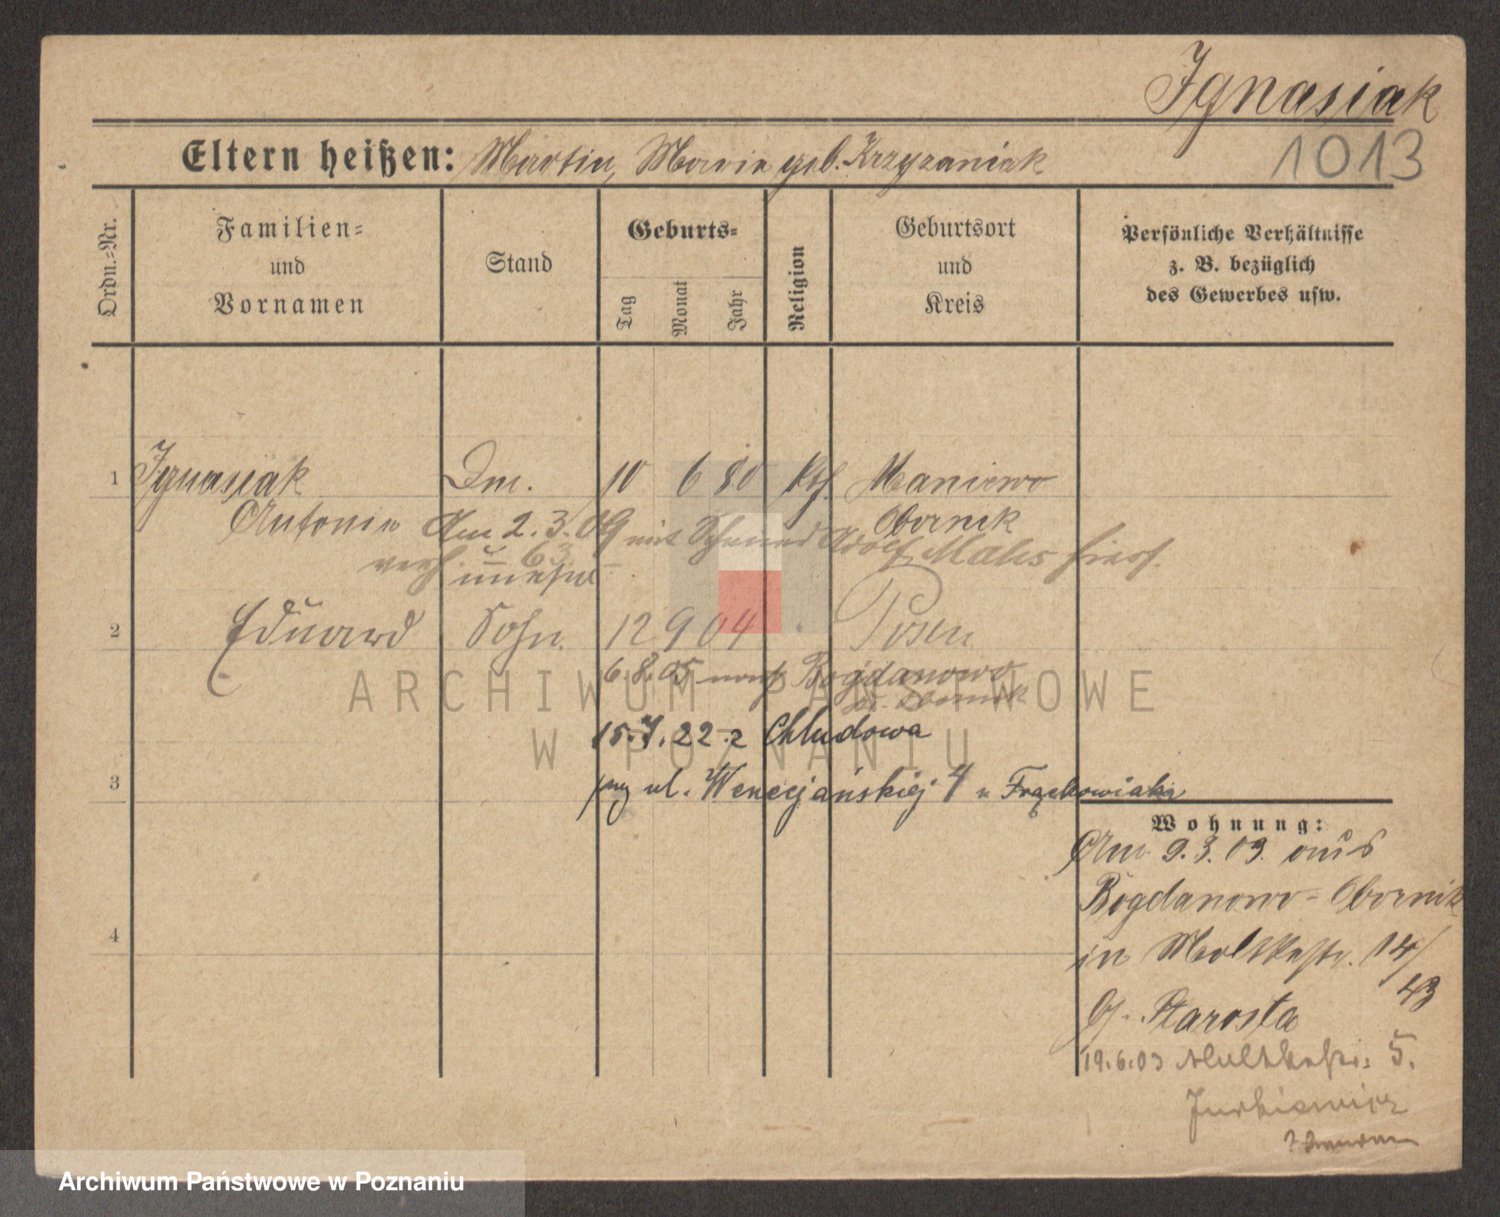 Ignasiak
1013
Eltern heißen: Martin, Marie geb. Krzyzaniak
Ordn.-Nr.
Familien-
und
Vornamen
Stand
Geburts-
Tag
Monat
Jahr
Religion
Geburtsort
und
Kreis
Persönliche Verhältnisse
z. B. bezüglich
des Gewerbes usw.
1 Ignasiak Dm. 10 6 80 kth. Maniewo
Antonie Obornik
Am 2.3.09 mit Adolf hier
verh.
2 Eduard Sohn 12 9 04 " Posen
6.8.05 nach Bogdanowo
Kr. Obornik
15.7.22 z Chludowa
3 przy ul. Wenecjańskiej 4 u Frąckowiaka
4
Wohnung:
Am 9.3.03 aus
Bogdanowo-Obornik
in Moltkestr. 14/
43
Starosta
19.6.03 Moltkestr. 5.
ARCHIWUM PAŃSTWOWE
W POZNANIU
Archiwum Państwowe w Poznaniu